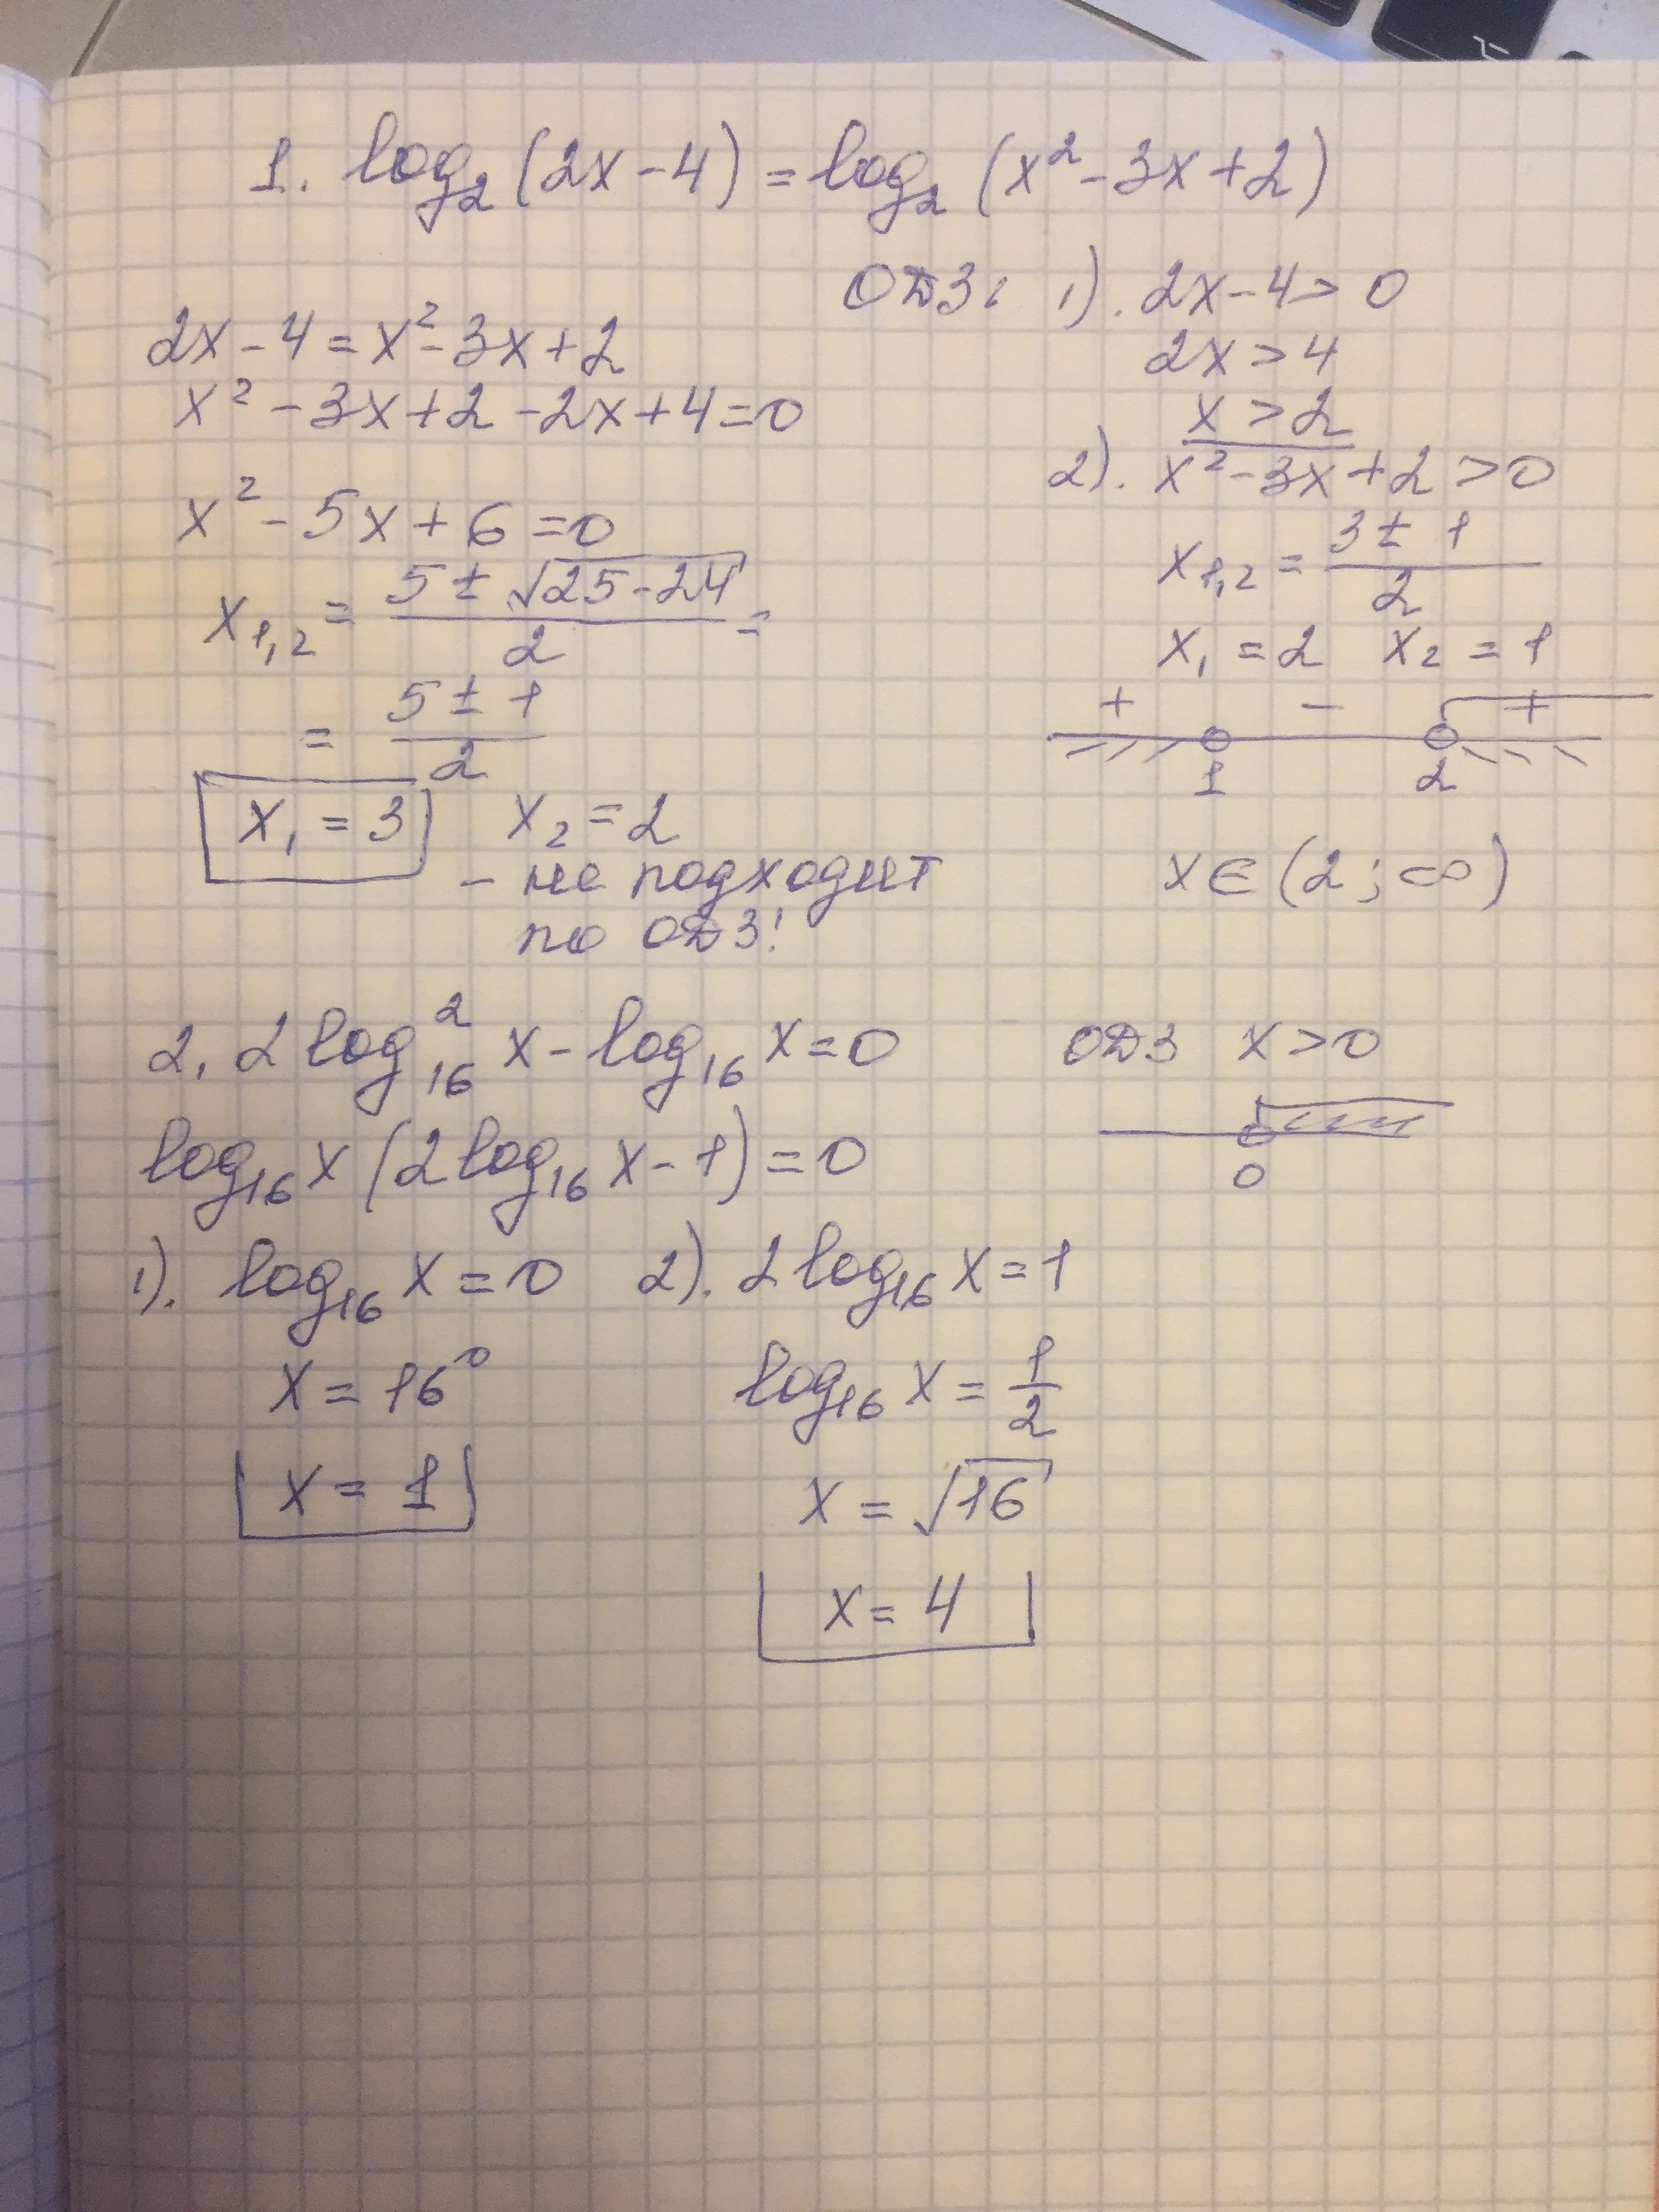 1. log₂(2x-4) = log₂(x²-3x+2)
ОДЗ: 1). 2x-4>0
2x>4
x>2
2). x²-3x+2>0
x₁,₂ = (3±1)/2
x₁=2 x₂=1
+ - +
1 2
x∈(2;∞)
2x-4=x²-3x+2
x²-3x+2-2x+4=0
x²-5x+6=0
x₁,₂ = (5±√(25-24))/2 =
= (5±1)/2
x₁=3 x₂=2
- не подходит
по ОДЗ!
2. 2log₁₆²x-log₁₆x=0
ОДЗ x>0
0
log₁₆x(2log₁₆x-1)=0
1). log₁₆x=0
x=16⁰
x=1
2). 2log₁₆x=1
log₁₆x=1/2
x=√16
x=4